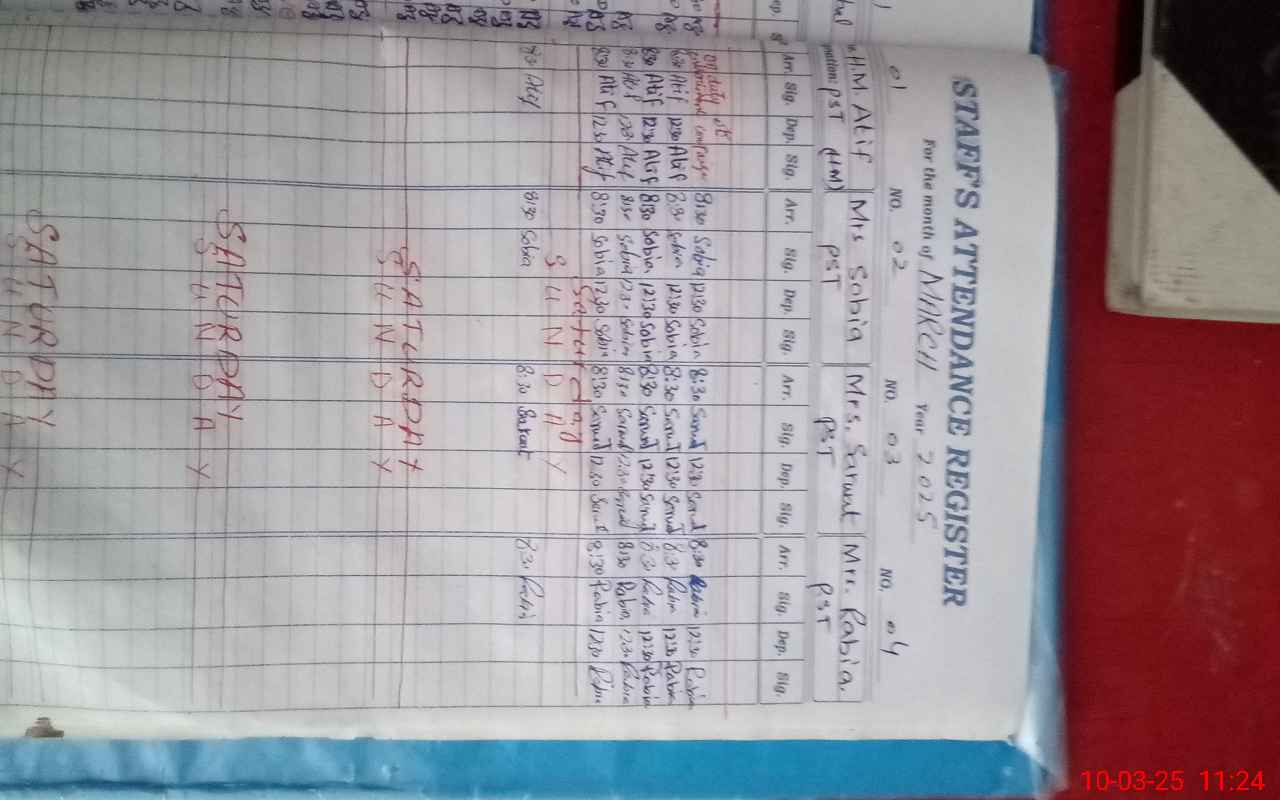 STAFF'S ATTENDANCE REGISTER
For the month of MARCH Year 2025
01 NO. 02 NO. 03 NO. 04
H.M. Atif Mrs Sobia Mrs. Sarwat Mrs. Rabia.
PST (HM) PST PST PST
Arr. Sig. Dep. Sig. Arr. Sig. Dep. Sig. Arr. Sig. Dep. Sig. Arr. Sig. Dep. Sig.
on duty at
8:30 Sobia 12:30 Sobia 8:30 Sarwat 12:30 Sarwat 8:30 Rabia 12:30 Rabia
8:30 Atif 12:30 Atif 8:30 Sobia 12:30 Sobia 8:30 Sarwat 12:30 Sarwat 8:30 Rabia 12:30 Rabia
8:30 Atif 12:30 Atif 8:30 Sobia 12:30 Sobia 8:30 Sarwat 12:30 Sarwat 8:30 Rabia 12:30 Rabia
8:30 Atif 12:30 Atif 8:30 Sobia 12:30 Sobia 8:30 Sarwat 12:30 Sarwat 8:30 Rabia 12:30 Rabia
8:30 Atif 12:30 Atif 8:30 Sobia 12:30 Sobia 8:30 Sarwat 12:30 Sarwat 8:30 Rabia 12:30 Rabia
Saturday
SUNDAY
8:30 Atif 8:30 Sobia 8:30 Sarwat 8:30 Rabia
SATURDAY
SUNDAY
SATURDAY
SUNDAY
SATURDAY
SUNDAY
10-03-25 11:24